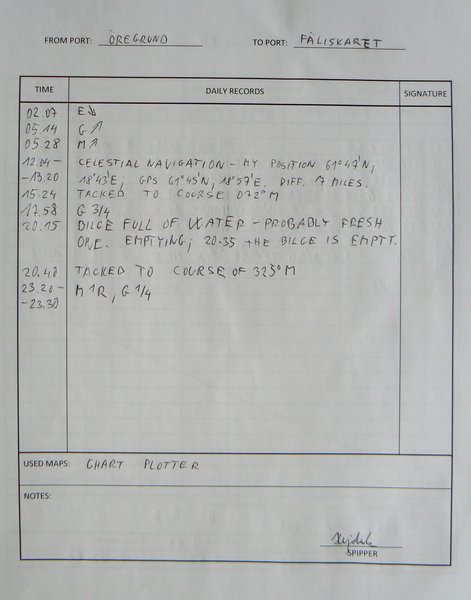 FROM PORT: ÖREGRUND TO PORT: FÄLISKARET
TIME DAILY RECORDS SIGNATURE
02.07 E↘
05.14 G↗
05.28 M↗
12.04 – CELESTIAL NAVIGATION – MY POSITION 61°47'N,
–13.20 18°43'E, GPS 61°45'N, 18°57'E. DIFF. 7 MILES.
15.24 TACKED TO COURSE 072°M
17.58 G 3/4
20.15 BILGE FULL OF WATER – PROBABLY FRESH
ONE. EMPTYING, 20.35 THE BILGE IS EMPTY.
20.40 TACKED TO COURSE OF 325°M
23.20 – M 1R, G 1/4
–23.30
USED MAPS: CHART PLOTTER
NOTES:
SPIPPER